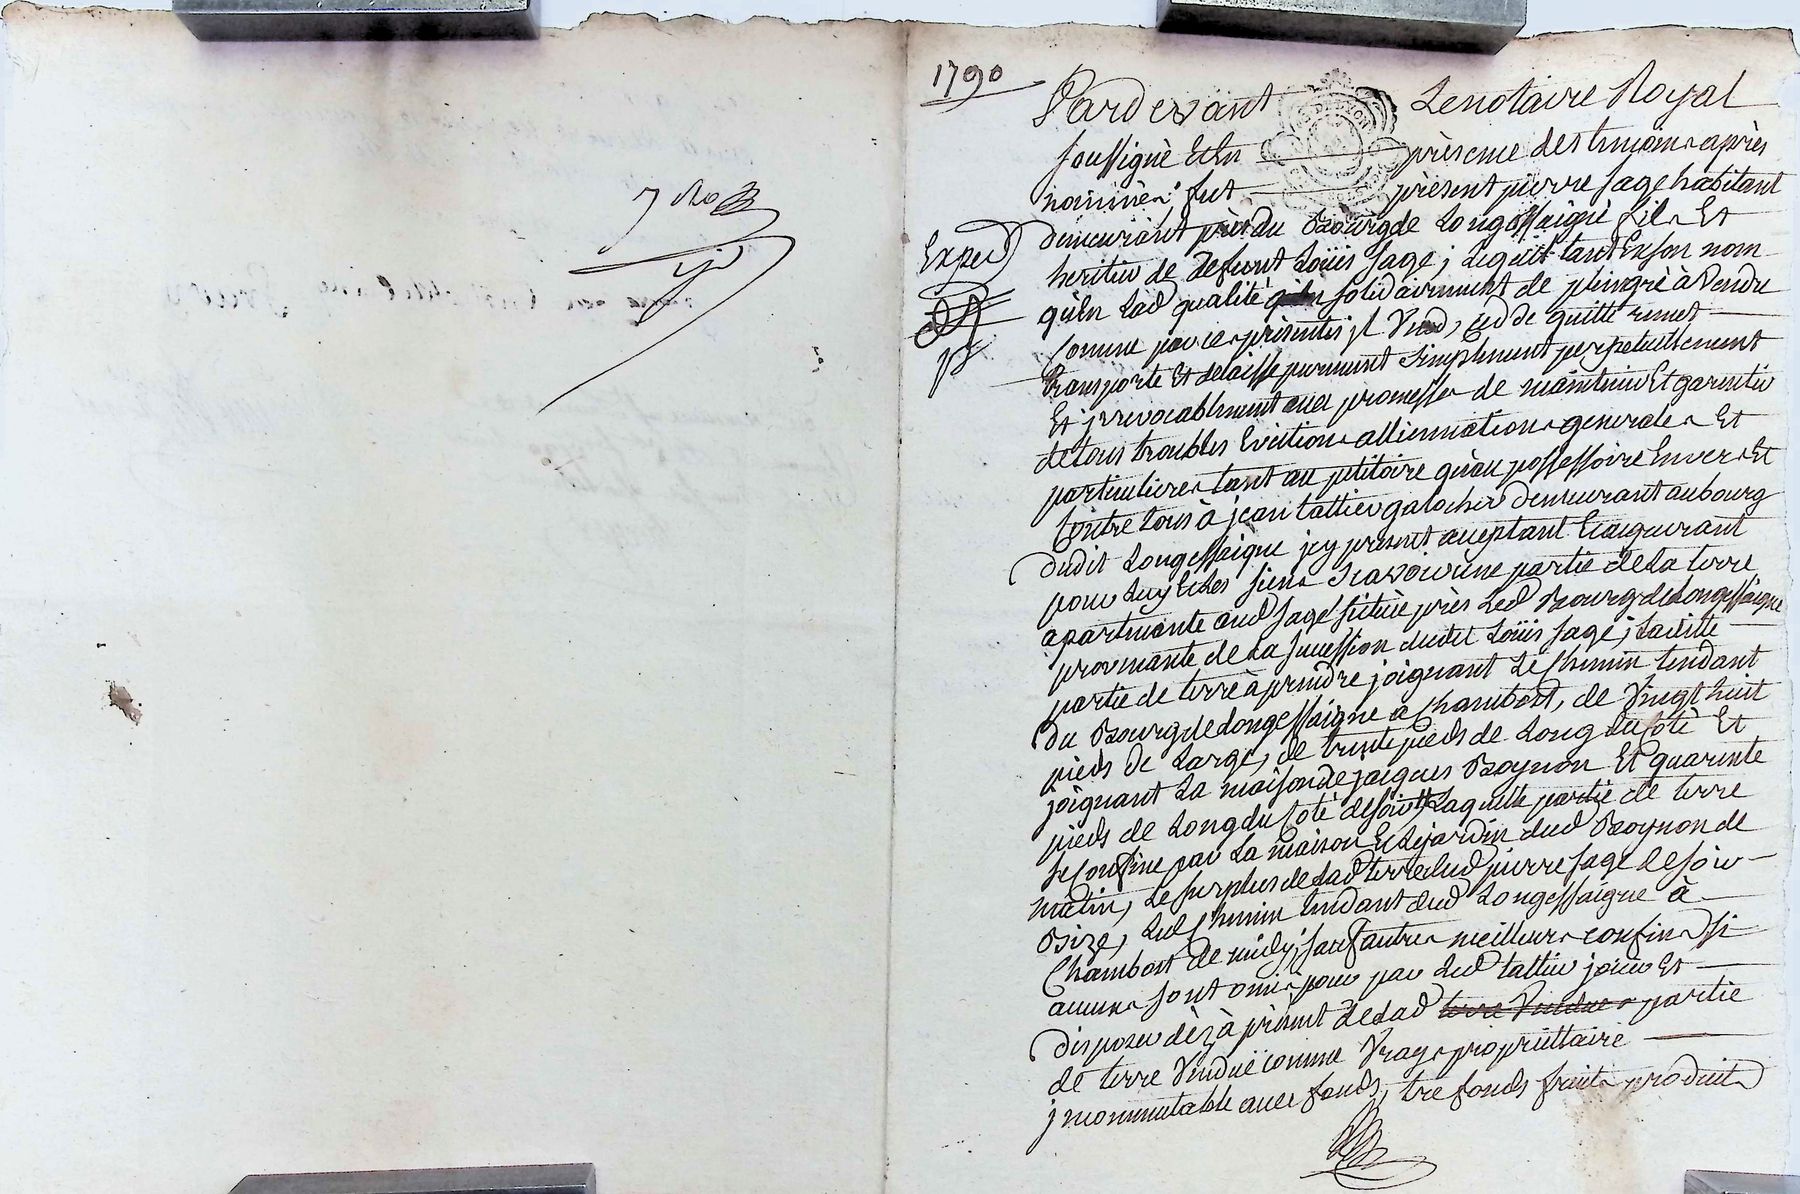 1790
Pardevant Le notaire Royal
soussigné Et En présence des temoins après
nommés, fut présent pierre sage habitant
demeurant près du Bourg de Longessaigne fils Et
Exped
heritier de deffunt Loüis sage, Lequel tant En son nom
qu'En Lad qualité solidairement de plein gré à Vendu
Comme par ces présentes jl Vend, ced de quitte remet
transporte Et delaisse purement simplement perpetuellement
Et jrrevocablement avec promesse de maintenir Et garentir
de tous troubles Evictions allienations generales Et
particulieres tant au petitoire qu'au possessoire Envers Et
Contre tous à jean tattier galocher demeurant au bourg
dudit Longessaigne jcy present acceptant Et acquerant
pour Luy Et Les siens sçavoir une partie de La terre
apartenante aud sage située près Led Bourg de Longessaigne
provenante de La succession dudit Loüis sage, Laditte
partie de terre à prendre joignant Le Chemin tendant
du Bourg de Longessaigne à Chambost, de Vingt huit
pieds de Large, de trente pieds de Long du Coté Et
joignant La maison de jacques Boynon Et quarente
pieds de Long du Coté de soir, Laquelle partie de terre
se Confine par La maison Et Le jardin dud Boynon de
matin, Le surplus de Lad terre dud pierre sage de soir
Bize, Led Chemin tendant dud Longessaigne à
Chambost de midy, sauf autres meilleurs confins si
aucuns sont omis pour par Led tattier joüir Et
disposer dèz à présent de Lad terre Vendue partie
de terre Vendüe comme Vray propriettaire
jncommutable avec fonds, tres fonds fruits produits